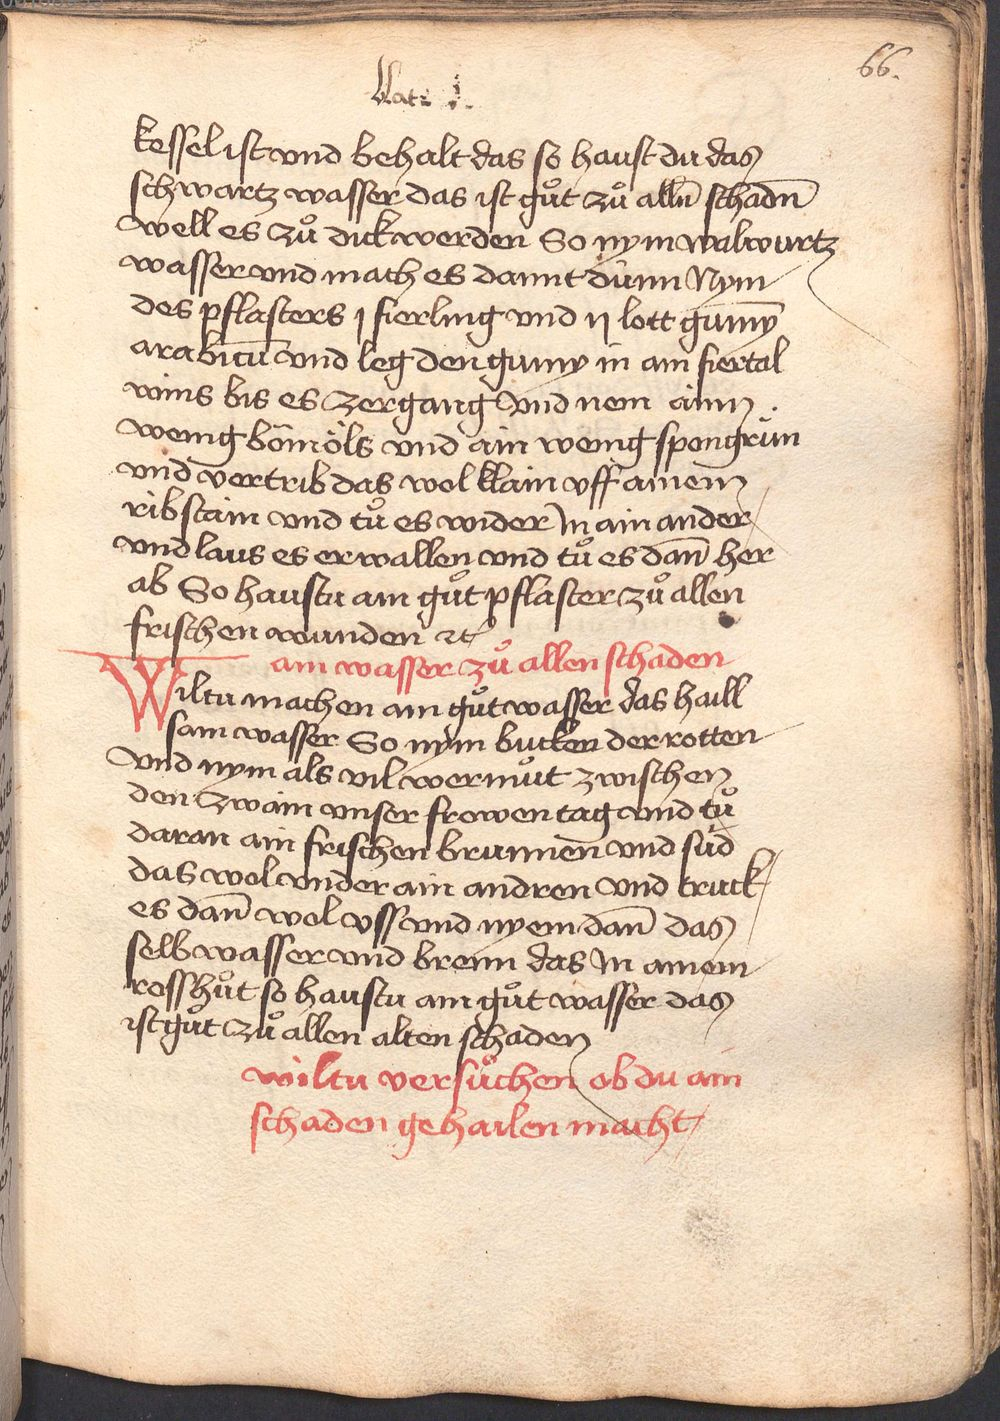 66.
blat j.
kessel ist vnd behalt das so haust du das
schwartz wasser das ist gůt zů alln̄ schadn̄
well es zů dick werden So nym walwurtz
wasser vnd mach es damit dünn Nym
des pflasters j fierling vnd ij lott gum̄y
arabicū vnd leg den gumy in ain fiertal
wins bis es zergang Vnd nem ainn
wenig bömöls vnd ain wenig spengrün
vnd vertrib das wol klain vff ainem
ribstain vnd tů es wider In ain ander
vnd laus es erwallen vnd tů es dan̄ her
ab So haustu ain gůt pflaster zů allen
frischen wunden ꝛc
ain wasser zů allen schaden
Wiltu machen ain gůt wasser das haill
sam wasser So nym bucken der rotten
Vnd nym als vil wermůt zwischen
den zwain vnser frowen tag vnd tů
daran ain frischen brunnen vnd süd
das wol vnder ain andren vnd truck
es dan̄ wol vss vnd nyem dan̄ das
selb wasser vnd brenn das In ainem
rosshůt so haustu ain gůt wasser das
ist gůt zů allen alten schaden
wiltu versůchen ob du ain
schaden gehailen macht